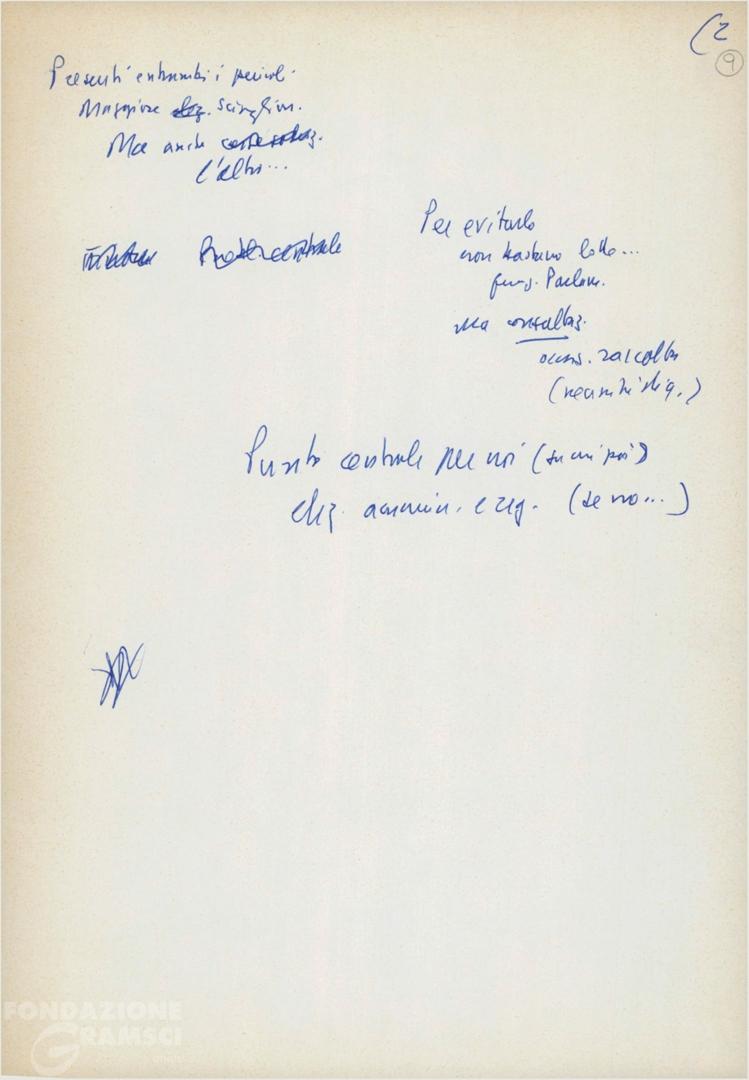 (2
9
Presenti entrambi i pericol.
Maggiore elez. Scioglim.
Ma anche
l'altro...
Punto centrale
Per evitarlo
non bastano lotte...
funz. Parlam.
ma consultaz.
raccolta
Punto centrale per noi (su cui poi)
elez. ammin. e reg. (se no...)
FONDAZIONE
GRAMSCI